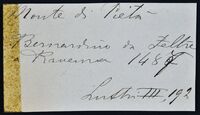 Monte di Pietà
Bernardino da Feltre
a Ravenna 148
Lustri III, 192